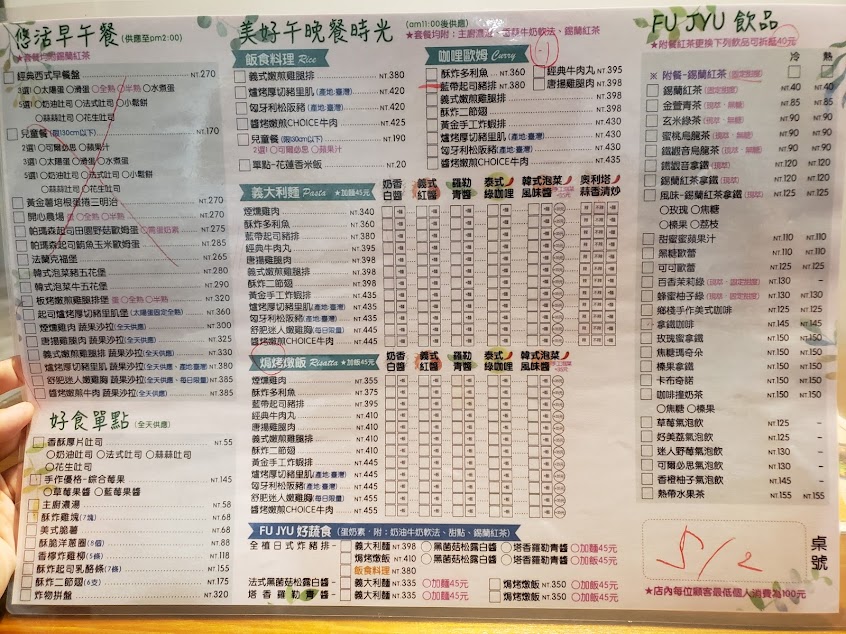 悠活早午餐 (供應至pm2:00)
★套餐均附錫蘭紅茶
經典西式早餐盤 NT.270
3選1 ○太陽蛋 ○滑蛋 ○全熟 ○半熟 ○水煮蛋
5選1 ○奶油吐司 ○法式吐司 ○小鬆餅
○蒜蒜吐司 ○花生吐司
兒童餐 (限130cm以下) NT.170
2選1 ○可爾必思 ○蘋果汁
3選1 ○太陽蛋 ○滑蛋 ○水煮蛋
5選1 ○奶油吐司 ○法式吐司 ○小鬆餅
○蒜蒜吐司 ○花生吐司
黃金薯培根蛋捲三明治 NT.270
開心農場 ○全熟 ○半熟 NT.270
帕瑪森起司田園野菇歐姆蛋 NT.275
帕瑪森起司鮪魚玉米歐姆蛋 NT.285
法蘭克福堡 NT.265
韓式泡菜豬五花堡 NT.280
韓式泡菜牛五花堡 NT.290
板烤嫩煎雞腿排堡 蛋○全熟 ○半熟 NT.320
起司爐烤厚切豬里肌堡 (太陽蛋固定全熟) NT.360
煙燻雞肉 蔬果沙拉 (全天供應) NT.300
唐揚雞腿肉 蔬果沙拉 (全天供應) NT.325
義式嫩煎雞腿排 蔬果沙拉 (全天供應) NT.330
爐烤厚切豬里肌 蔬果沙拉 (全天供應、產地:臺灣) NT.380
舒肥迷人嫩雞胸 蔬果沙拉 (全天供應、每日限量) NT.385
醬烤嫩煎牛肉 蔬果沙拉 (全天供應) NT.385
好食單點 (全天供應)
香酥厚片吐司 NT.55
○奶油吐司 ○法式吐司 ○蒜蒜吐司
○花生吐司
手作優格-綜合莓果 NT.145
○草莓果醬 ○藍莓果醬
主廚濃湯 NT.58
酥炸雞塊(7塊) NT.68
美式脆薯 NT.68
酥脆洋蔥圈(8個) NT.88
香檸炸雞柳(5條) NT.118
酥炸起司乳酪條(7條) NT.155
酥炸二節翅(6支) NT.175
炸物拼盤 NT.320
美好午晚餐時光 (am11:00後供應)
★套餐均附：主廚濃湯、香蒜牛奶軟法、錫蘭紅茶
飯食料理 Rice
義式嫩煎雞腿排 NT.380
爐烤厚切豬里肌 (產地:臺灣) NT.420
匈牙利松阪豬 (產地:臺灣) NT.420
醬烤嫩煎CHOICE牛肉 NT.425
兒童餐 (限130cm以下) NT.190
2選1 ○可爾必思 ○蘋果汁
單點-花蓮香米飯 NT.20
咖哩歐姆 Curry
-1
酥炸多利魚 NT.360
經典牛肉丸 NT.395
藍帶起司豬排 NT.380
唐揚雞腿肉 NT.398
義式嫩煎雞腿排 NT.398
酥炸二節翅 NT.398
黃金手工炸蝦排 NT.430
爐烤厚切豬里肌 (產地:臺灣) NT.430
匈牙利松阪豬 (產地:臺灣) NT.430
醬烤嫩煎CHOICE牛肉 NT.435
義大利麵 Pasta ★加麵45元
奶香白醬 義式紅醬 羅勒青醬 泰式綠咖哩 韓式泡菜風味醬 奧利塔蒜香清炒
煙燻雞肉 NT.340
酥炸多利魚 NT.360
藍帶起司豬排 NT.380
經典牛肉丸 NT.395
唐揚雞腿肉 NT.398
義式嫩煎雞腿排 NT.398
酥炸二節翅 NT.398
黃金手工炸蝦排 NT.435
爐烤厚切豬里肌 (產地:臺灣) NT.435
匈牙利松阪豬 (產地:臺灣) NT.435
舒肥迷人嫩雞胸 (每日限量) NT.435
醬烤嫩煎CHOICE牛肉 NT.435
焗烤燉飯 Risotto ★加飯45元
奶香白醬 義式紅醬 羅勒青醬 泰式綠咖哩 韓式泡菜風味醬
煙燻雞肉 NT.355
酥炸多利魚 NT.375
藍帶起司豬排 NT.395
經典牛肉丸 NT.410
唐揚雞腿肉 NT.410
義式嫩煎雞腿排 NT.410
酥炸二節翅 NT.410
黃金手工炸蝦排 NT.445
爐烤厚切豬里肌 (產地:臺灣) NT.445
匈牙利松阪豬 (產地:臺灣) NT.445
舒肥迷人嫩雞胸 (每日限量) NT.445
醬烤嫩煎CHOICE牛肉 NT.455
FU JYU 好蔬食 (蛋奶素，附：奶油牛奶軟法、甜點、錫蘭紅茶)
全植日式炸豬排- 義大利麵 NT.398 ○黑菌菇松露白醬 ○塔香羅勒青醬 ○加麵45元
焗烤燉飯 NT.410 ○黑菌菇松露白醬 ○塔香羅勒青醬 ○加飯45元
飯食料理 NT.380
法式黑菌菇松露白醬- 義大利麵 NT.335 ○加麵45元 焗烤燉飯 NT.350 ○加飯45元
塔香羅勒青醬- 義大利麵 NT.335 ○加麵45元 焗烤燉飯 NT.350 ○加飯45元
FU JYU 飲品
★附餐紅茶更換下列飲品可折抵40元
冷 熱
※ 附餐-錫蘭紅茶 (固定甜度)
錫蘭紅茶 (固定甜度) NT.40 NT.40
金萱青茶 (現萃、無糖) NT.85 NT.85
玄米綠茶 (現萃、無糖) NT.90 NT.90
蜜桃烏龍茶 (現萃、無糖) NT.90 NT.90
鐵觀音烏龍茶 (現萃、無糖) NT.90 NT.90
鐵觀音拿鐵 NT.120 NT.120
錫蘭紅茶拿鐵 NT.120 NT.120
風味-錫蘭紅茶拿鐵 NT.125 NT.125
○玫瑰 ○焦糖
○榛果 ○荔枝
甜蜜蜜蘋果汁 NT.110 NT.110
黑糖歐蕾 NT.110 NT.110
可可歐蕾 NT.125 NT.125
百香茉莉綠 (現萃、固定甜度) NT.130 -
蜂蜜柚子綠 (現萃、固定甜度) NT.130 NT.130
鄉棧手作美式咖啡 NT.125 NT.125
拿鐵咖啡 NT.145 NT.145
玫瑰蜜拿鐵 NT.150 NT.150
焦糖瑪奇朵 NT.150 NT.150
榛果拿鐵 NT.150 NT.150
卡布奇諾 NT.150 NT.150
咖啡撞奶茶 NT.150 NT.150
○焦糖 ○榛果
草莓氣泡飲 NT.125 -
好美荔氣泡飲 NT.125 -
迷人野莓氣泡飲 NT.130 -
可爾必思氣泡飲 NT.130 -
香橙柚子氣泡飲 NT.145 -
熱帶水果茶 NT.155 NT.155
桌號
★店內每位顧客最低個人消費為100元